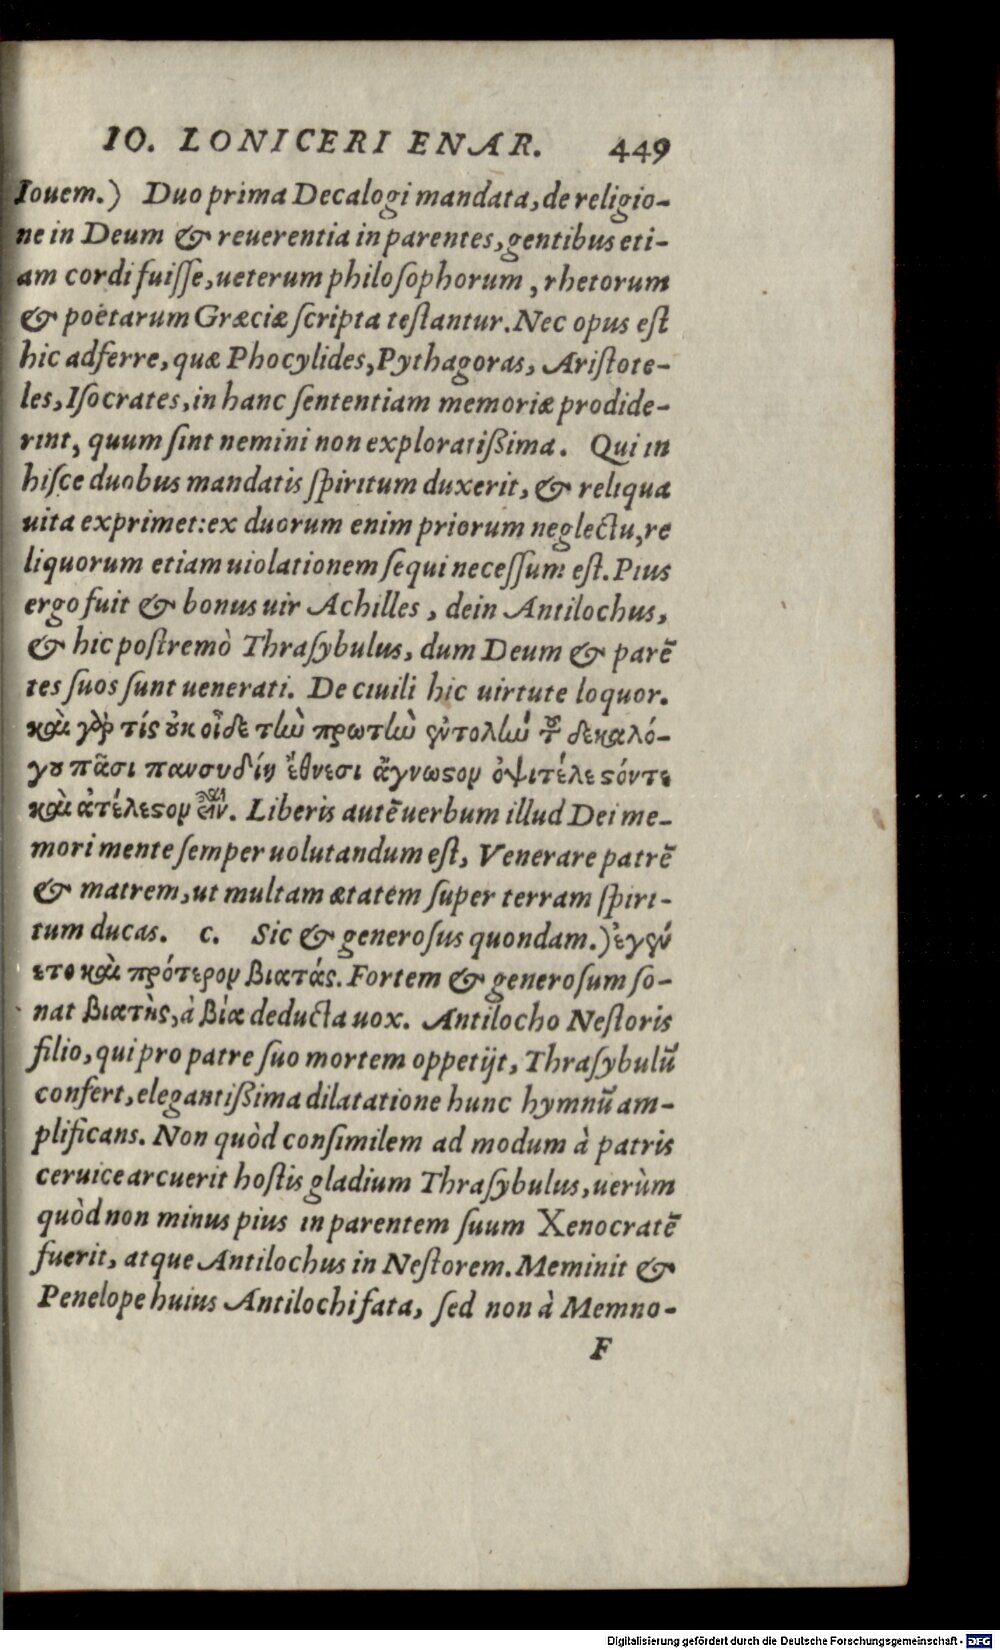 IO. LONICERI ENAR. 449
Iouem.) Duo prima Decalogi mandata, de religio-
ne in Deum & reuerentia in parentes, gentibus eti-
am cordi fuiſſe, ueterum philoſophorum, rhetorum
& poëtarum Græciæ ſcripta teſtantur. Nec opus eſt
hic adferre, quæ Phocylides, Pythagoras, Ariſtote-
les, Iſocrates, in hanc ſententiam memoriæ prodide-
rint, quum ſint nemini non exploratißima. Qui in
hiſce duobus mandatis ſpiritum duxerit, & reliqua
uita exprimet: ex duorum enim priorum neglectu, re
liquorum etiam uiolationem ſequi neceſſum eſt. Pius
ergo fuit & bonus uir Achilles, dein Antilochus,
& hic poſtremò Thraſybulus, dum Deum & parē
tes ſuos ſunt uenerati. De ciuili hic uirtute loquor.
καὶ γὰρ τίς οὐκ οἶδε τὼ πρωτὼ ἐντολὼ τοῦ δεκαλό-
γου πᾶσι πανσυδίῃ ἔθνεσι ἄγνωϛον ὀψιτέλεϛόν τε
καὶ ἀτέλεϛον. Liberis autē uerbum illud Dei me-
mori mente ſemper uolutandum eſt, Venerare patrē
& matrem, ut multam ætatem ſuper terram ſpiri-
tum ducas. c. Sic & generoſus quondam.) ἐγέν
ετο καὶ πρότερον βιατάς. Fortem & generoſum ſo-
nat βιατὴς, à βία deducta uox. Antilocho Neſtoris
filio, qui pro patre ſuo mortem oppetijt, Thraſybulū
confert, elegantißima dilatatione hunc hymnū am-
plificans. Non quòd conſimilem ad modum à patris
ceruice arcuerit hoſtis gladium Thraſybulus, uerùm
quòd non minus pius in parentem ſuum Xenocratē
fuerit, atque Antilochus in Neſtorem. Meminit &
Penelope huius Antilochi fata, ſed non à Memno-
F
Digitalisierung gefördert durch die Deutsche Forschungsgemeinschaft - DFG